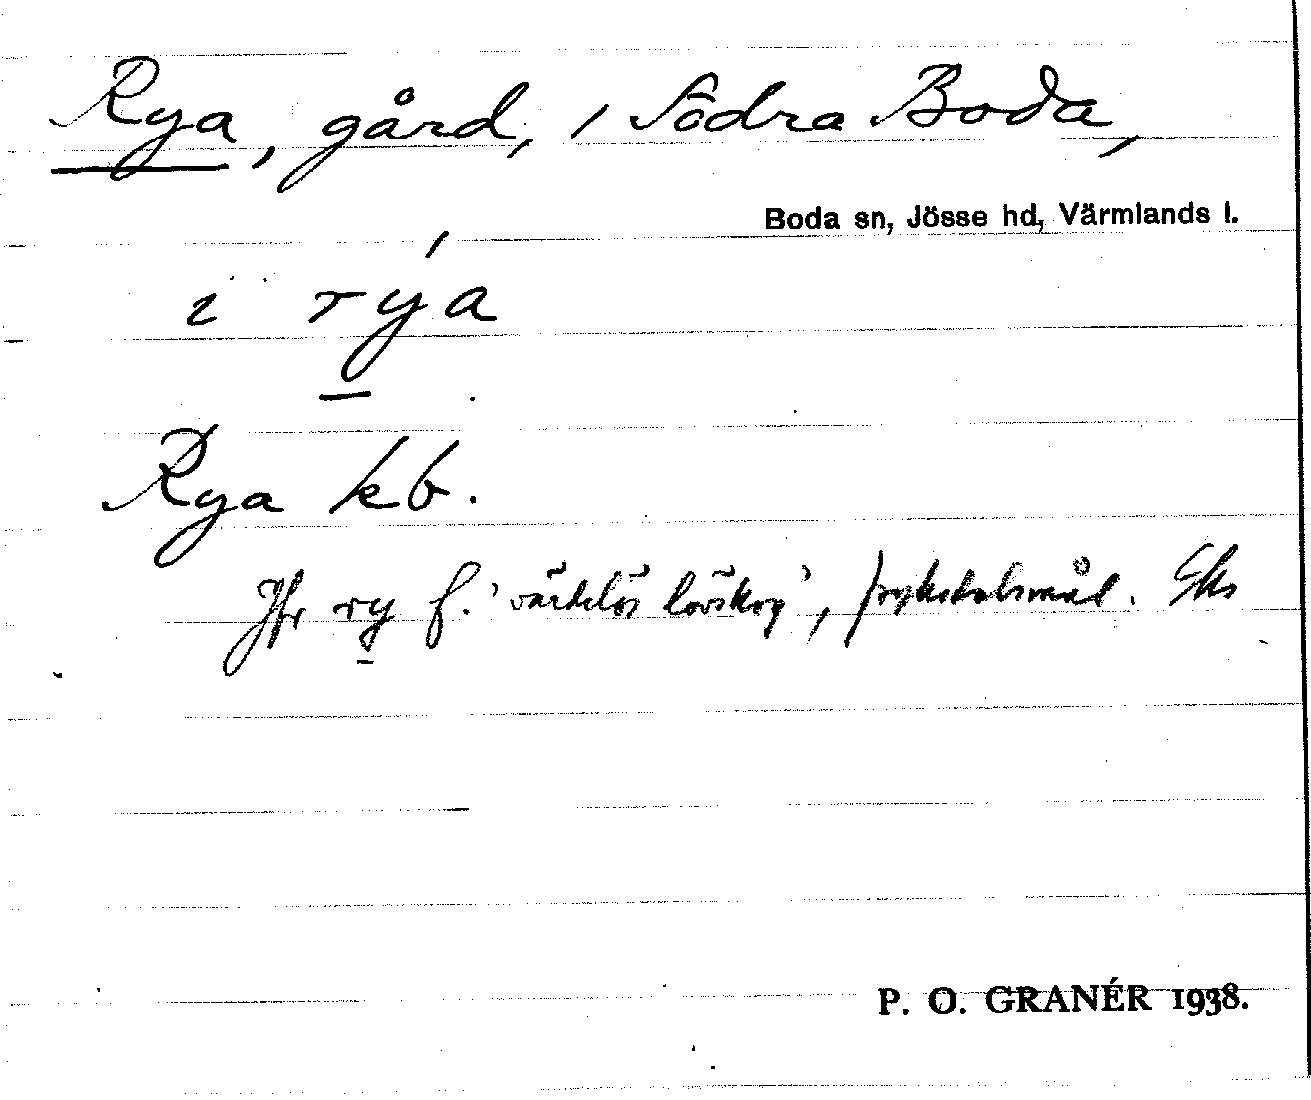 Rya, gård, / Södra Boda,
Boda sn, Jösse hd, Värmlands l.
i rýa
Rya kb.
Jfr ry f. 'värdelös lövskog', fryksdalsmål.
P. O. GRANÉR 1938.